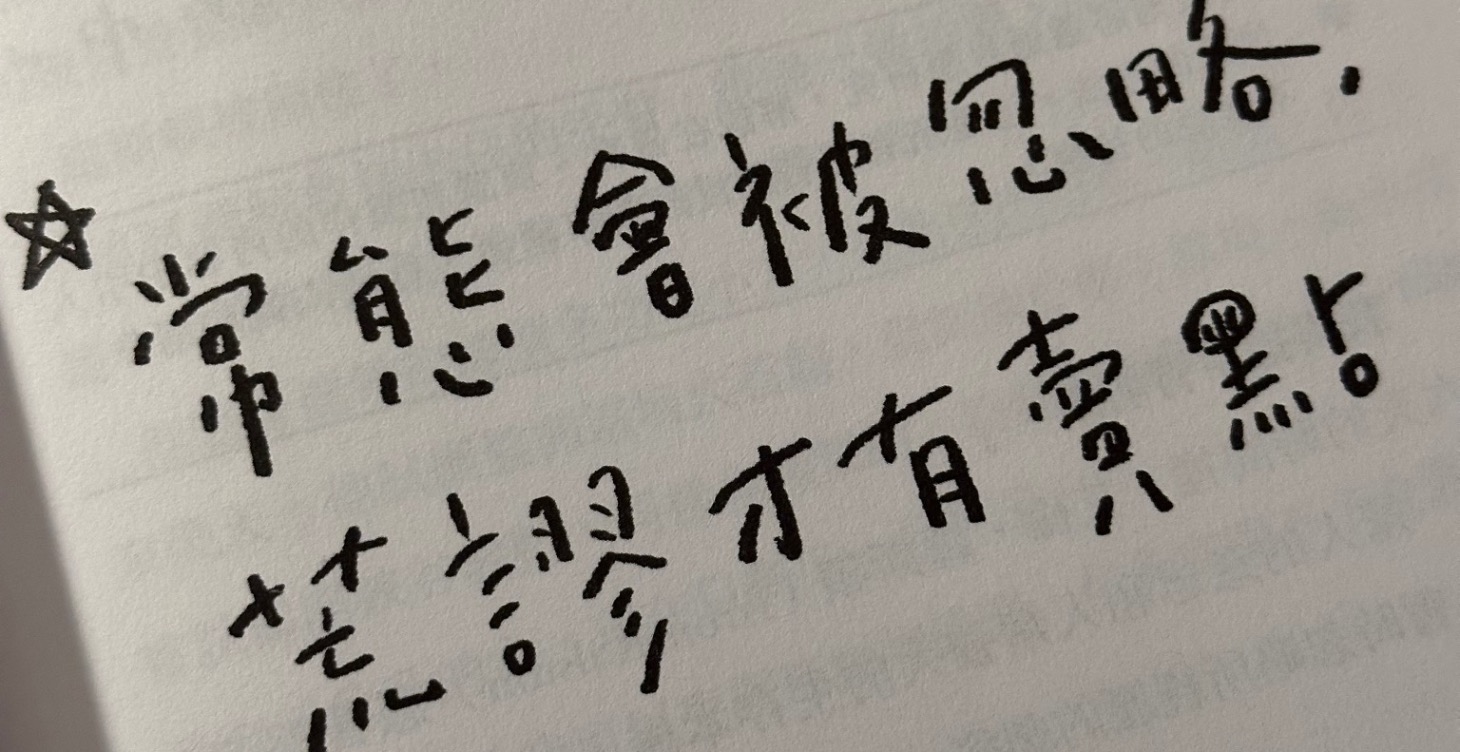 ☆常態會被忽略.
荒謬才有賣點。